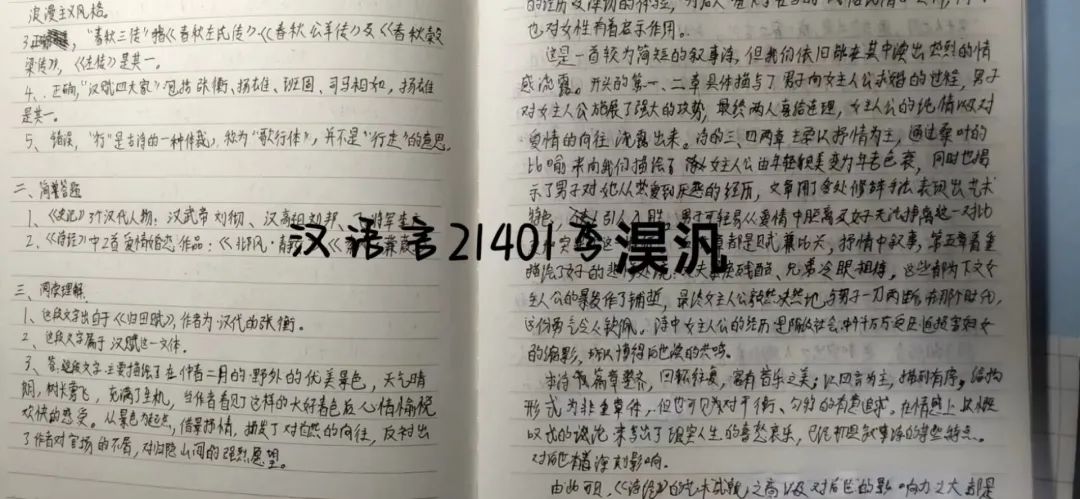 浪漫主义风格。
3、正确，"春秋三传"指《春秋左氏传》《春秋公羊传》及《春秋穀
梁传》，《左传》是其一。
4、正确，"汉赋四大家"包括张衡、扬雄、班固、司马相如，扬雄
是其一。
5、错误，"行"是古诗的一种体裁，称为"歌行体"，并不是"行走"的意思。
二、简答题
1、《史记》3个汉代人物：汉武帝刘彻、汉高祖刘邦、
2、《诗经》中2首爱情婚恋作品：《邶风·静
三、阅读理解
1、这段文字出自于《归田赋》，作者为汉代的张衡。
2、这段文字属于汉赋这一文体。
3、答：这段文字主要描绘了在仲春二月的野外的优美景色，天气晴
朗，树木葱飞，充满了生机，当作者看见了这样的大好春色后心情愉悦
欢快的感受。从景色为起点，借景抒情，抒发了对自然的向往，反衬出
了作者对官场的不屑，对归隐山间的强烈愿望。
汉语言21401李淏汎
也对女性有着启示作用。
这是一首较为简短的叙事诗，但我们依旧能在其中读出热烈的情
感流露。开头的第一、二章具体描写了男子向女主人公求婚的过程，男子
对女主人公施展了强大的攻势，最终两人喜结连理，女主人公的纯情以及对
爱情的向往流露出来。诗的三、四两章主要以抒情为主，通过桑叶的
比喻来向我们描绘了女主人公由年轻貌美变为年老色衰，同时也揭
示了男子对她从热爱到厌恶的经历，文章用了多处修辞手法表现出艺术
特色，引人入胜。男子可轻易从爱情中脱离又女子无法挣离这一对比
都是赋兼比兴，抒情中叙事，第五章着重
描绘了女子的悲惨处境：丈夫暴戾残酷、兄弟冷眼相待，这些都为下文女
主人公的暴发作了铺垫，最终女主人公毅然决然地与男子一刀两断，在那个时代，
这份勇气令人钦佩。诗中女主人公的经历是隔段社会中千千万万受压迫损害妇女
的缩影，所以博得后世读的共鸣。
本诗篇章整齐，回环往复，富有音乐之美；以四言为主，描刻有序。结构
形式为非重章体，但也可见为对平衡、匀称的有意追求。在情感上以慨
叹式的诉说来写出了坎坷人生的喜怒哀乐，已见初具叙事诗的某些特点。
对后世有着深刻影响。
由此可见，《诗经》的艺术成就之高以及对后世的影响力之大都是